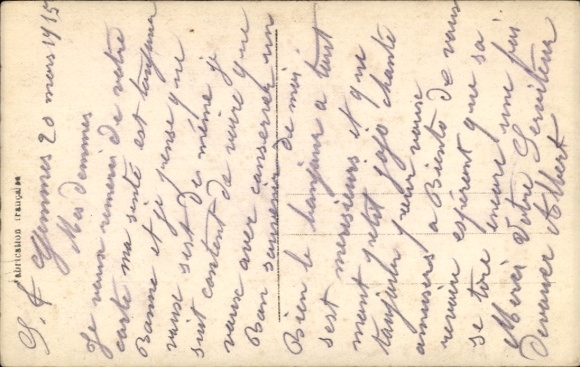 Fabrication française
20 mars 1915
Mes dammes
Je vous remerci de votre
carte ma sinté est toujour
Bonne et je pense que
vous sest de même je
suit content de voire que
vous avec conserver un
Bon souvenir de moi
Bien le bonjour a tout
sest messieurs et que
mont petit jojo chante
toujour pour vous
amusers a Biento de vous
revoire espérent que sa
se tire encore une fois
Merci Votre Serviteur
Devouer Albert